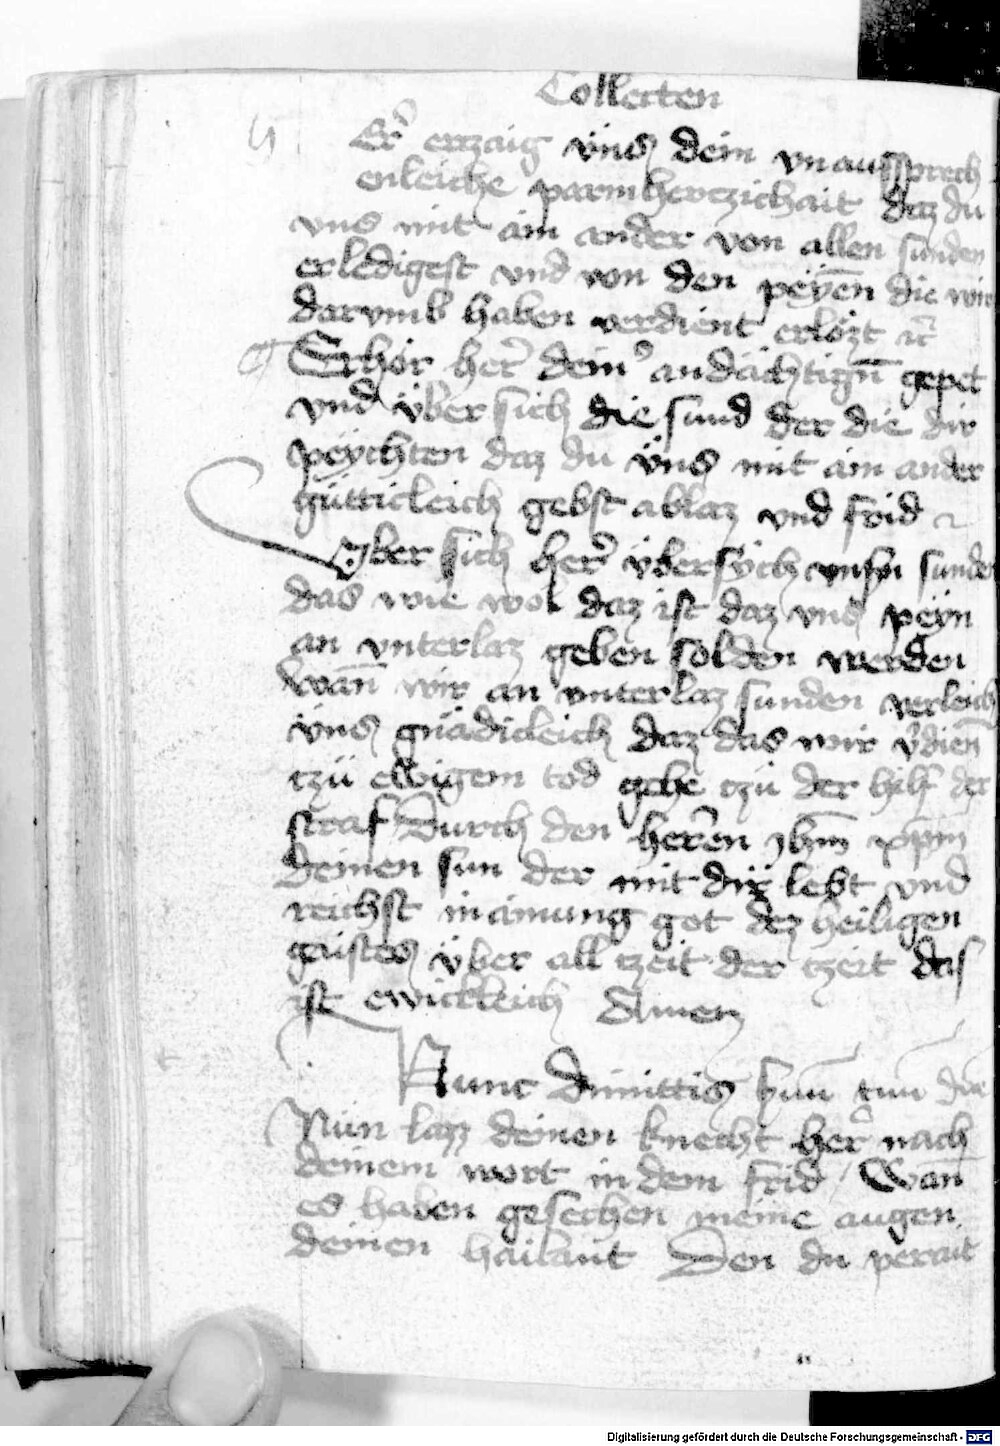 Collecten
Er̄ erczaig v̈ns dein vnaussprech
enleiche parmherczichait daz du
vns mit ain ander von allen sunden
erledigest vnd von den peÿen̄ die wir
darvmb haben verdient erlözt ꝛc̄
Erhör her̄ dein͛ andächtign̄ gepet
vnd v̈ber sich die sund der die dir
peÿchten daz du v̈ns mit ain ander
gütticleich gebst ablaz vnd frid ꝛ
Vber sich her̄ v̈bersÿch vnsn̄ sunde
das wie wol daz ist daz vns peÿn
an vnterlaz geben solden werden
wan̄ wir an vnterlaz sunden verleich
v̈ns gnädicleich daz das wir v̄dien̄
czü ewigem tod gehe czü der hilf der
straf Durch den her̄en jhm̄ xp̄m
deinen sun der mit dir lebt vnd
reichst in ainung got dez heiligen
geistes v̈ber all czeit der czeit das
ist ewickleich Amen
Nunc dimittis suū tuū dn̄e
Nün lazz deinen knecht her̄ nach
deinem wort in dem frid / Wan̄
es haben gesechen meine augen
deinen hailant Den du perait
Digitalisierung gefördert durch die Deutsche Forschungsgemeinschaft - DFG